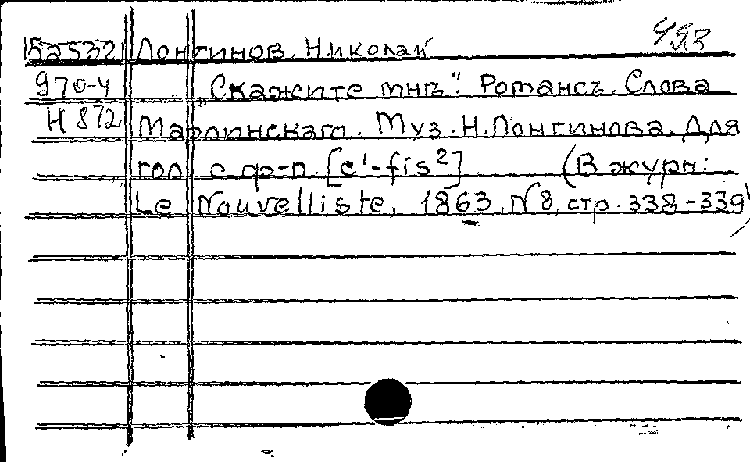 493
52532 Лонгинов Николай
970-4 „Скажите мнѣ". Романсъ. Слова
Н 872 Марлинскаго. Муз. Н. Лонгинова. Для
гол. с ф-п. [c¹-fis²] (В журн:
Le Nouvelliste, 1863, N 8, стр. 338-339)